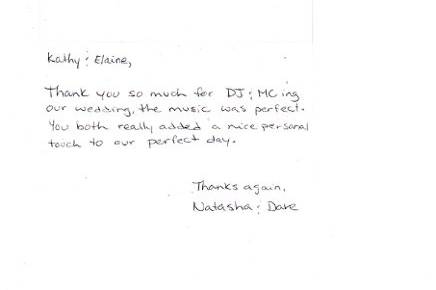 Kathy & Elaine,
Thank you so much for DJ & MCing
our wedding, the music was perfect.
You both really added a nice personal
touch to our perfect day.
Thanks again,
Natasha & Dave